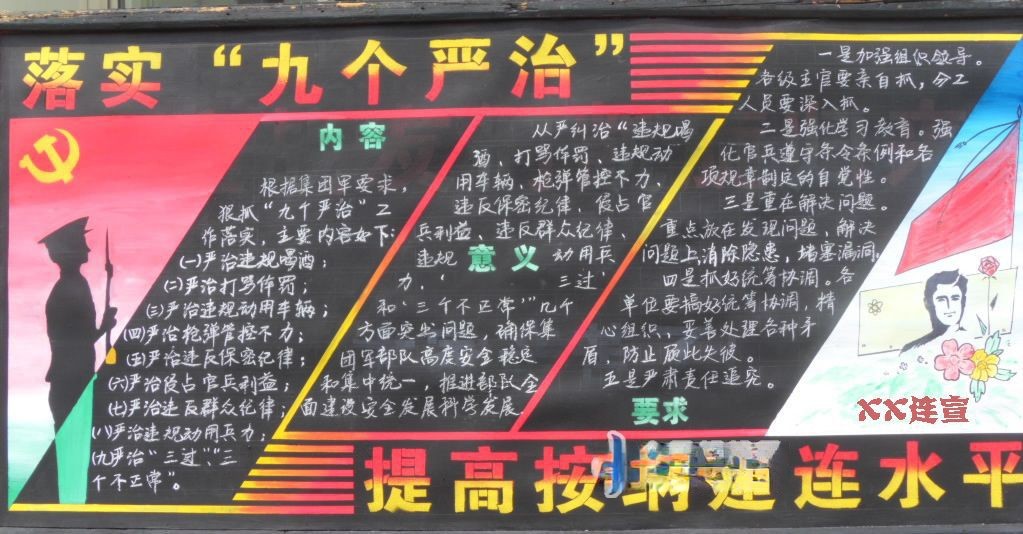 落实“九个严治”
内容
根据集团军要求，
狠抓“九个严治”工
作落实，主要内容如下：
(一)严治违规喝酒；
(二)严治打骂体罚；
(三)严治违规动用车辆；
(四)严治枪弹管控不力；
(五)严治违反保密纪律；
(六)严治侵占官兵利益；
(七)严治违反群众纪律；
(八)严治违规动用兵力；
(九严治“三过”、“三
个不正常”。
从严纠治“违规喝
酒、打骂体罚、违规动
用车辆、枪弹管控不力、
违反保密纪律、侵占官
兵利益、违反群众纪律、
违规 意义 动用兵
力、‘ 三过’
和‘三个不正常’”九个
方面突出问题，确保集
团军部队高度安全稳定
和集中统一，推进部队全
面建设安全发展科学发展.
一是加强组织领导。
各级主官要亲自抓，分工
人员要深入抓。
二是强化学习教育。强
化官兵遵守条令条例和各
项规章制定的自觉性。
三是重在解决问题。
重点放在发现问题，解决
问题上消除隐患，堵塞漏洞。
四是抓好统筹协调。各
单位要搞好统筹协调，精
心组织、妥善处理各种矛
盾，防止顾此失彼。
五是严肃责任追究。
要求
XX连宣
提高按纲建连水平